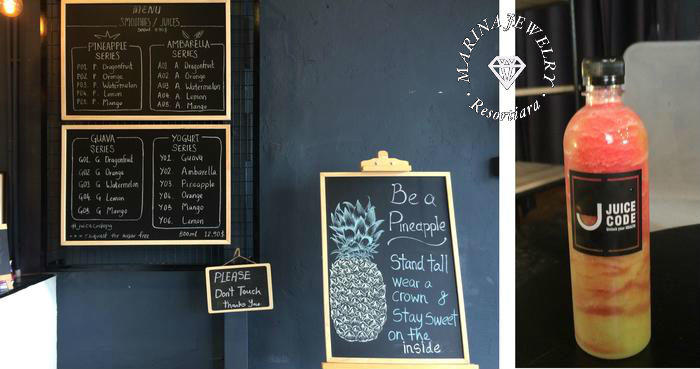 MENU
SMOOTHIES / JUICES
PINEAPPLE
SERIES
P01. P. Dragonfruit
P02. P. Orange
P03. P. Watermelon
P04. P. Lemon
P05. P. Mango
AMBARELLA
SERIES
A01 A. Dragonfruit
A02 A. Orange
A03 A. Watermelon
A04 A. Lemon
A05. A. Mango
GUAVA
SERIES
G01. G. Dragonfruit
G02 G. Orange
G03 G. Watermelon
G04 G. Lemon
G05 G. Mango
YOGURT
SERIES
Y01. Guava
Y02. Ambarella
Y03. Pineapple
Y04. Orange
Y05 Mango
Y06. Lemon
request for sugar free
500ml 12.90$
PLEASE
Don't Touch
Thanks You
Be a
Pineapple
Stand tall
wear a
crown &
Stay Sweet
on the
inside
MARINAJEWELRY
Resortiara
JUICE
CODE